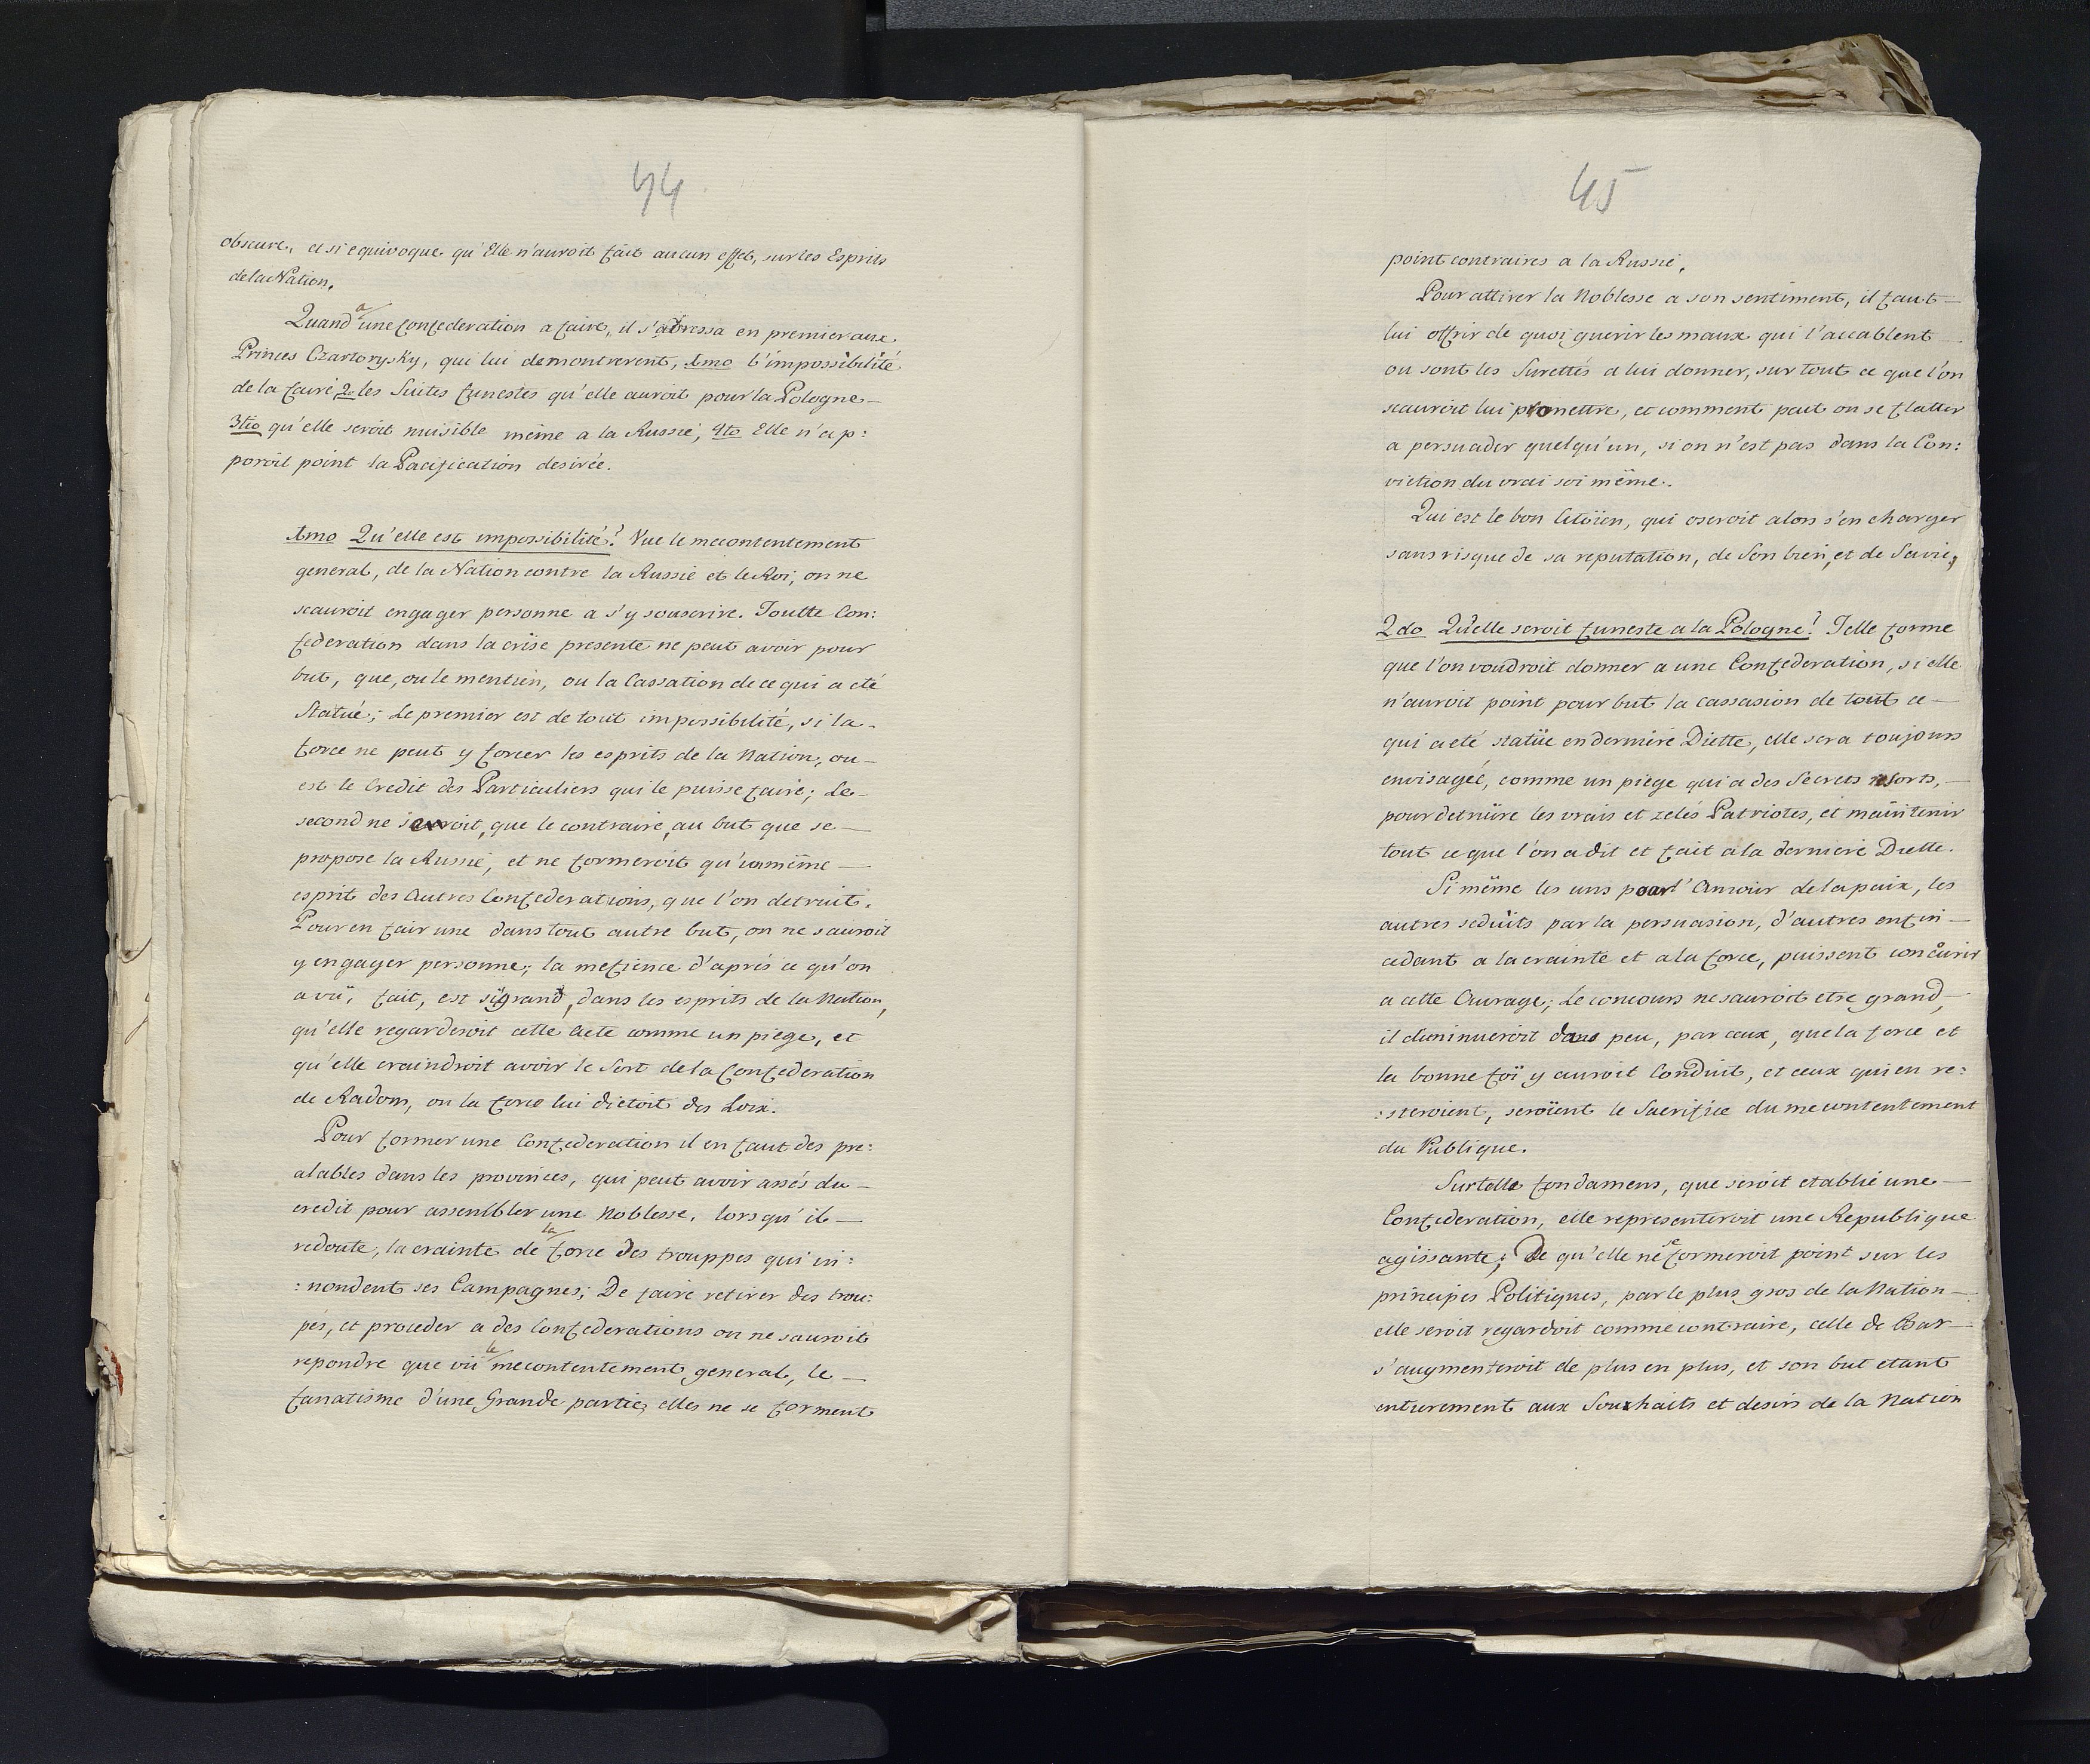 44
obscure, et si equivoque qu'Elle n'auroit fait aucun effet, sur les Esprits
de la Nation.
Quand a une Confederation a faire, il s'adressa en premier aux
Princes Czartorysky, qui lui demontrerent, 1mo l'impossibilité
de la faire, 2. les Suites funestes qu'elle auroit pour la Pologne —
3tio qu'elle seroit nuisible même a la Russie, 4to Elle n'ap:
poroit point la Pacification desirée.
1mo Qu'elle est impossibilité! Vue le mecontentement
general, de la Nation contre la Russie et le Roi, on ne
scauroit engager personne a s'y souscrire. Toutte Con:
federation dans la crise presente ne peut avoir pour
but, que, ou le mentien, ou la Cassation de ce qui a eté
Statué; Le premier est de tout impossibilité, si la —
force ne peut y forcer les esprits de la Nation, ou —
est le Credit des Particuliers qui le puisse faire; Le —
second ne seroit, que le contraire, au but que se —
propose la Russie, et ne formeroit qu'un même —
esprit des Autres Confederations, que l'on detruit.
Pour en fair une dans tout autre but, on ne sauroit
y engager personne; la mefience d'aprés ce qu'on
a vü, fait, est si grand, dans les esprits de la Nation,
qu'elle regarderoit cette Acte comme un piege, et
qu'elle craindroit avoir le Sort de la Confederation
de Radom, ou la force lui dictoit des Loix.
Pour former une Confederation il en faut des pre:
alables dans les provinces, qui peut avoir assés du —
credit pour assembler une Noblesse, lorsqu'il —
redoute, la crainte de la force des trouppes qui in:
:nondent ses Campagnes; De faire retirer des trou:
pes, et proceder a des Confederations on ne sauroit
repondre que vü le mecontentement general, le —
fanatisme d'une Grande partie, elles ne se forment
45
point contraires a la Russie.
Pour attirer la Noblesse a son sentiment, il faut —
lui offrir de quoi guerir les maux qui l'accablent —
ou sont les Surettés a lui donner, sur tout ce que l'on
scauroit lui promettre, et comment peut on se flatter
a persuader quelqu'un, si on n'est pas dans la Con:
viction du vrai soi même.
Qui est le bon Citöien, qui oseroit alors s'en charger
sans risque de sa reputation, de Son bien, et de Sa vie,
2do Qu'elle seroit funeste a la Pologne! Telle forme
que l'on voudroit donner a une Confederation, si elle
n'auroit point pour but la cassasion de tout ce —
qui a eté statüe en derniere Diette, elle sera toujours
envisageé, comme un piege qui a des Secrets resorts, —
pour detruire les vrais et zelés Patriotes, et maintenir
tout ce que l'on a dit et fait à la derniere Diette.
Si même les uns pour l'Amour de la paix, les
autres seduits par la persuasion, d'autres enfin —
cedant a la crainte et a la force, puissent concurir
a cette Ouvrage; Le concours ne sauroit etre grand, —
il diminueroit dans peu, par ceux, que la force et
la bonne foi y auroit Conduit, et ceux qui en re:
:steroient, seroient le Sacrifice du mecontentement
du Publique.
Sur telle fondamens, que seroit etablie une —
Confederation, elle representeroit une Republique
agissante; De qu'elle ne se formeroit point sur les
principes Politiques, par le plus gros de la Nation —
elle seroit regardoit comme contraire, celle de Bar —
s'augmenteroit de plus en plus, et son but etant
entierement aux Souxhaits et desirs de la Nation